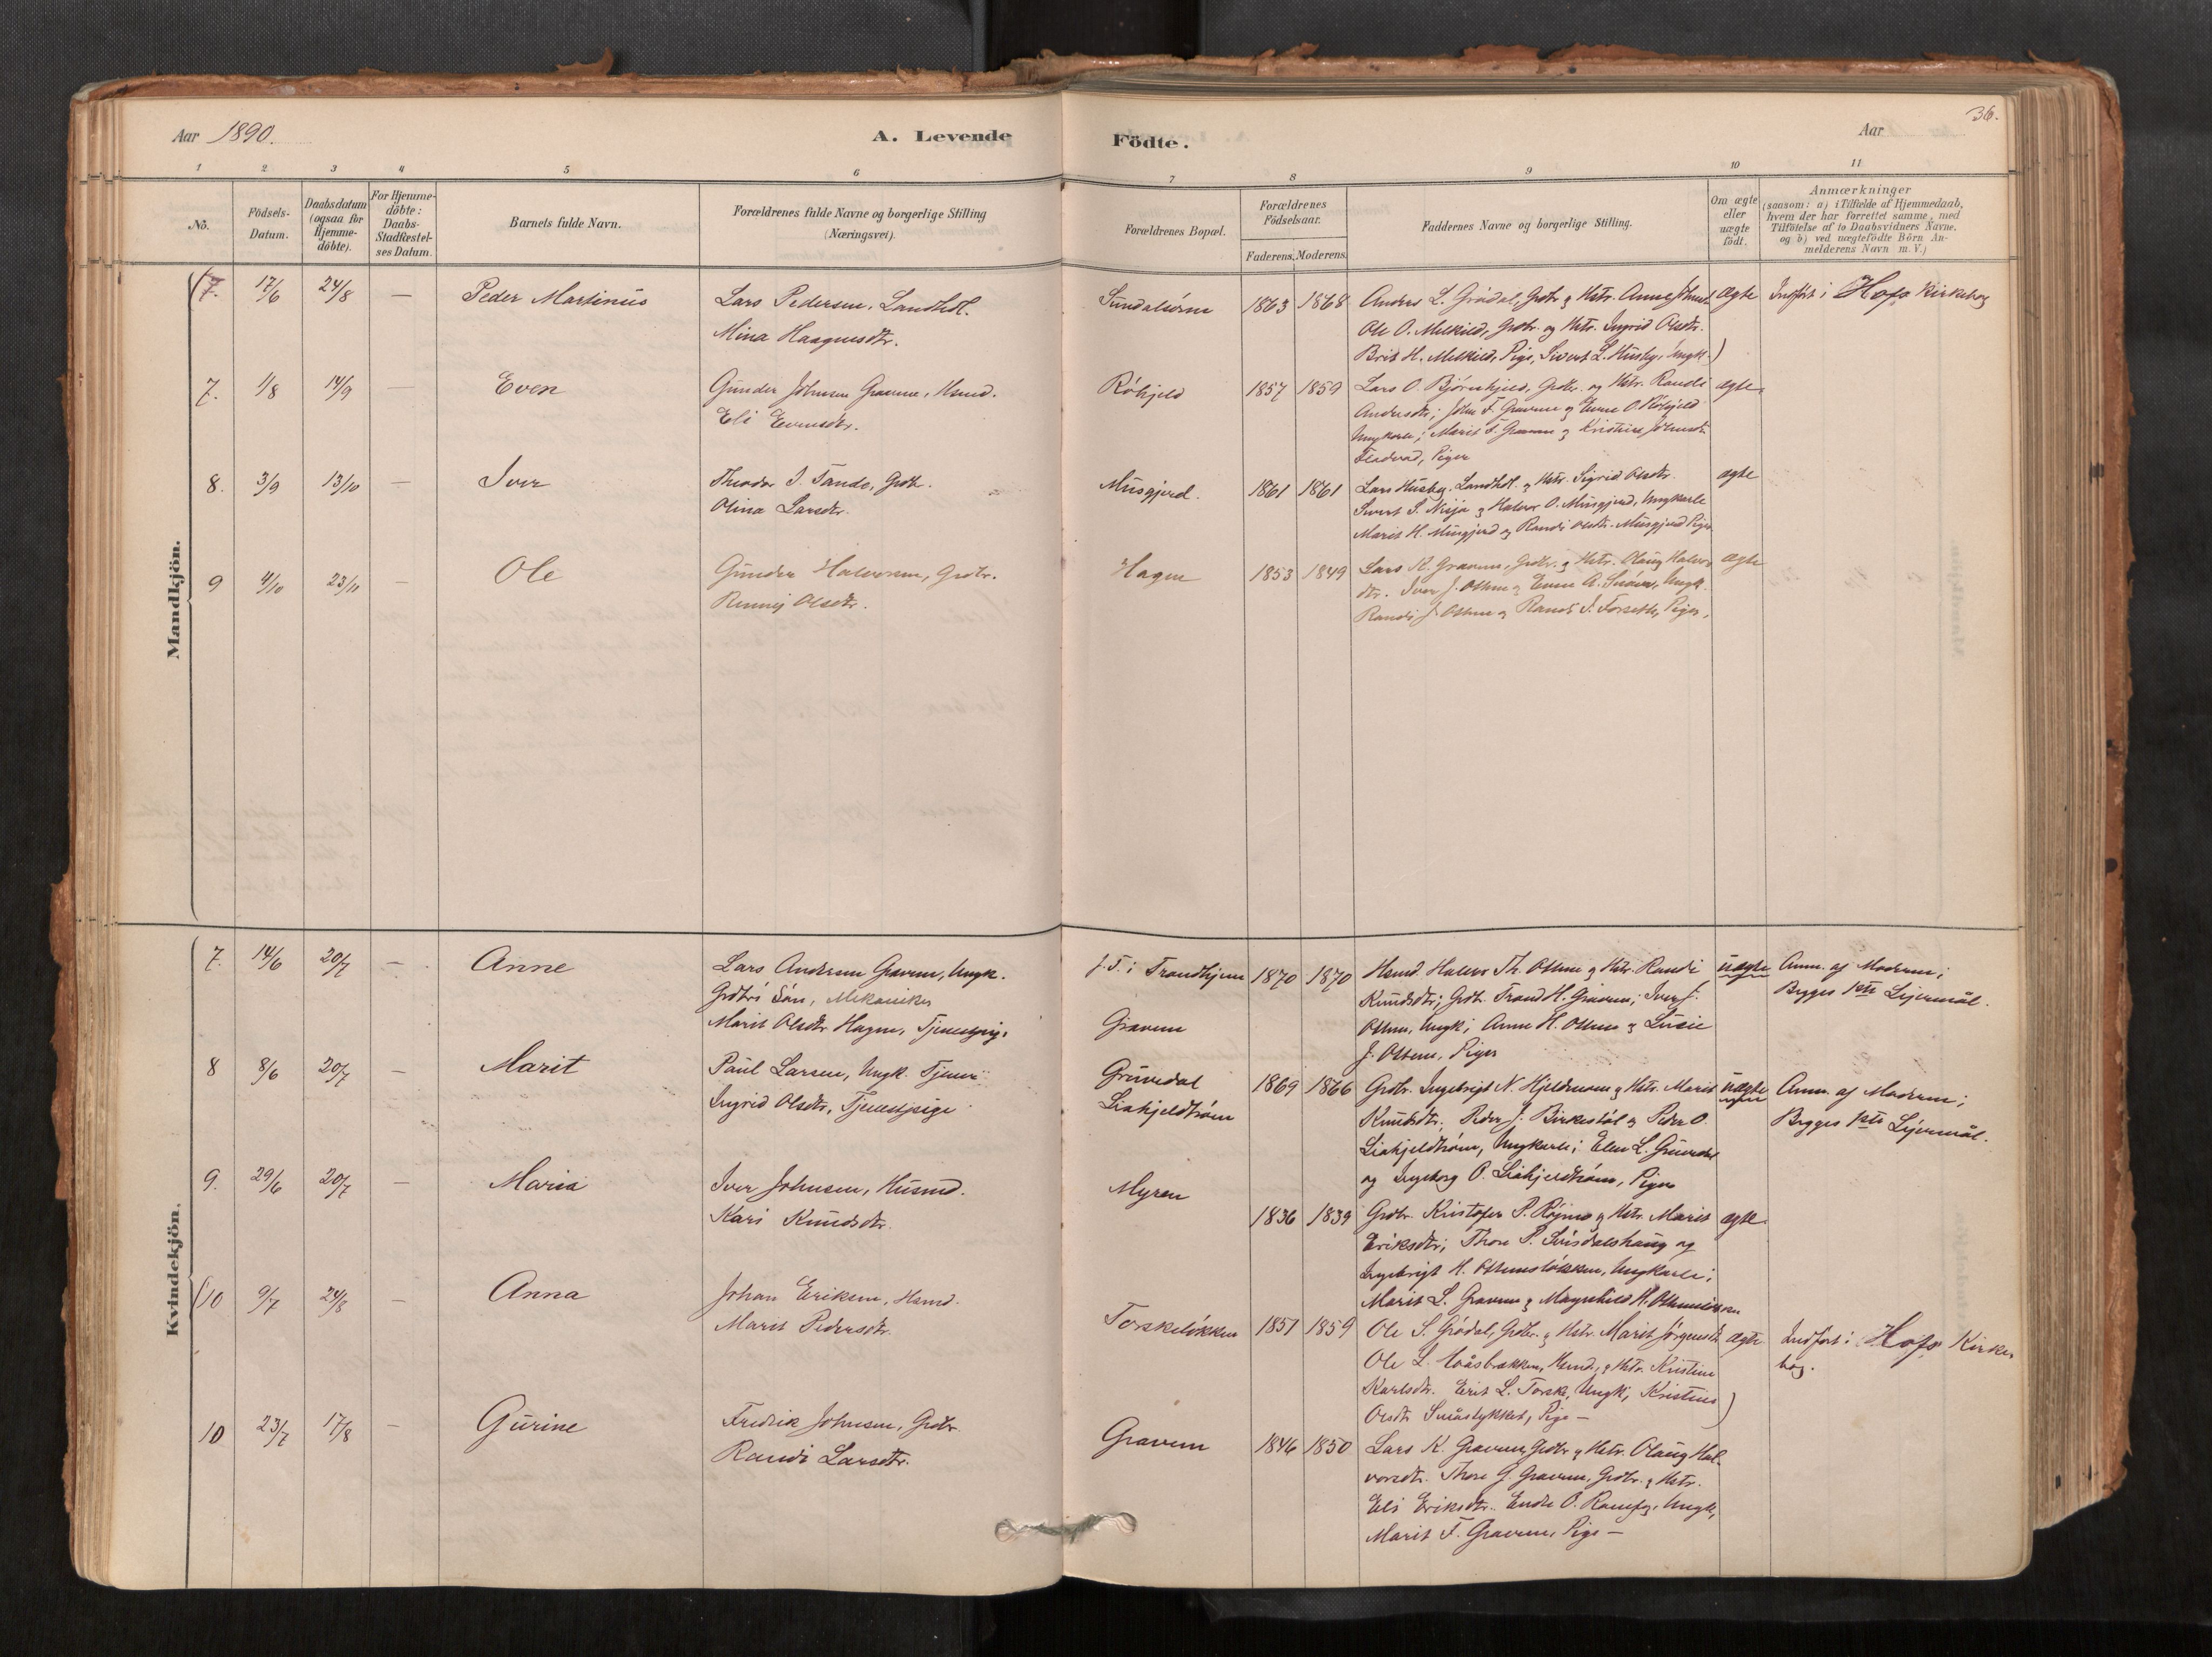 36.
Aar 1890.
A. Levende
Födte.
Aar
1 2 3 4 5 6 7 8 9 10 11
No.
Födsels-Datum.
Daabsdatum (ogsaa for Hjemme-döbte).
For Hjemme-döbte: Daabs-Stadfæstel-ses Datum.
Barnets fulde Navn.
Forældrenes fulde Navne og borgerlige Stilling (Næringsvei).
Forældrenes Bopæl.
Forældrenes Födselsaar.
Faderens. Moderens.
Faddernes Navne og borgerlige Stilling.
Om ægte eller uægte födt.
Anmærkninger (saasom: a) i Tilfælde af Hjemmedaab, hvem der har forrettet samme, med Tilföielse af to Daabsvidners Navne, og b) ved uægtefödte Börn Anmelderens Navn m. V.)
Mandkjön.
(7. 17/6 24/8 — Peder Martinus
Lars Pedersen, Landhdl.
Mina Haagensdtr.
Sundalsøren 1863 1868
Anders L. Grødal, Grdbr. & Hstr. Anne Johnsd.
Ole O. Melkild, Grdbr. og Hstr. Ingrid Olsdtr.
Brit H. Melkild, Pige, Sivert L. Husby, Ungk.)
ægte
Indført i Hofs Kirkebog
7. 1/8 14/9 — Even
Gunder Johnsen Gravem, Hsmd.
Eli Evensdtr.
Røhjeld 1857 1859
Lars O. Bjørnhjeld, Grdbr. og Hstr. Randi
Andersdtr; John F. Gravem & Even O. Røhjeld
Ungkarle; Marit F. Gravem & Kristine Johnsdtr.
Piger
ægte
8. 3/9 13/10 — Iver
Theodor I. Tande, Grdb.
Olina Larsdtr.
Musgjerd. 1861 1861
Lars Husby, Landhdl. & Hstr. Sigrid Olsdtr.
Sivert S. Nisja & Halvor O. Musgjerd, Ungkarle
Marit H. Musgjerd og Randi Olsdtr. Musgjerd Piger
ægte
9 4/10 23/11 — Ole
Gunder Halvorsen, Grdbr.
Rønnej Olsdtr.
Hagen 1853 1849
Lars K. Gravem, Grdbr. & Hstr. Olaug Halvors
dtr. Iver J. Ottem & Even A. Ungk.
Randi J. Ottem & Randi I. Forseth, Piger.
ægte
Kvindekjön.
7. 14/6 20/7 — Anne
Lars Andersen Gravem, Ungk.
Grdbrs Søn, Mekaniker
Marit Olsdtr Hagen, Tjenestpige
J. T. i Trondhjem 1870 1870
Gravem
Hsmd. Halvor Th. Ottem & Hstr. Randi
Knudsdtr; Grdb. Trond H. Gravem; Iver J.
Ottem, Ungk; Anne H. Ottem & Lucie
J. Ottem, Piger
uægte
Anm. af Moderen;
Begges 1ste Lejermål.
8 8/6 20/7 — Marit
Paul Larsen, Ungk. Tjener
Ingrid Olsdtr, Tjenestpige
Grüvedal 1869 1866
Liahjeldtrøen
Grdbr. Ingebrigt N. Hjeldmoen & Hstr. Marit
Knudsdtr. Peder J. Birkestøl & Peder O.
Liahjeldtrøen, Ungkarle; Elen L. Grüvedal
og Ingeborg O. Liahjeldtrøen, Piger
uægte
Anm. af Moderen;
Begges 1ste Lejermål.
9. 29/6 20/7 — Maria
Iver Johnsen, Husmd.
Kari Knudsdtr.
Myren 1836 1839
Grdbr. Kristofer P. Røjmo & Hstr. Marit
Eriksdtr; Thore P. og
Ingebrigt H. Ottemsløkken, Ungkarle;
Marit L. Gravem & Magnhild H. Ottemsløkken
ægte
(10 9/7 24/8 — Anna
Johan Eriksen, Hsmd.
Marit Pedersdtr.
Torskeløkken 1851 1859
Ole S. Grødal, Grdbr. & Hstr. Marit Jørgensdtr
Ole L. Håsbrækken, Hsmd., & Hstr. Kristine
Karlsdtr. Erik L. Torske, Ungk; Kristine
Olsdtr Småstykket, Pige — )
ægte
Indført i Hofs Kirke-
bog.
10 23/7 17/8 — Gurine
Fredrik Johnsen, Grdbr.
Randi Larsdtr.
Gravem 1846 1850
Lars K. Gravem, Grdbr & Hstr. Olaug Hal-
vorsdtr. Thore G. Gravem, Grdbr. & Hstr.
Eli Eriksdtr. Endre O. Ungk,
Marit F. Gravem, Pige —